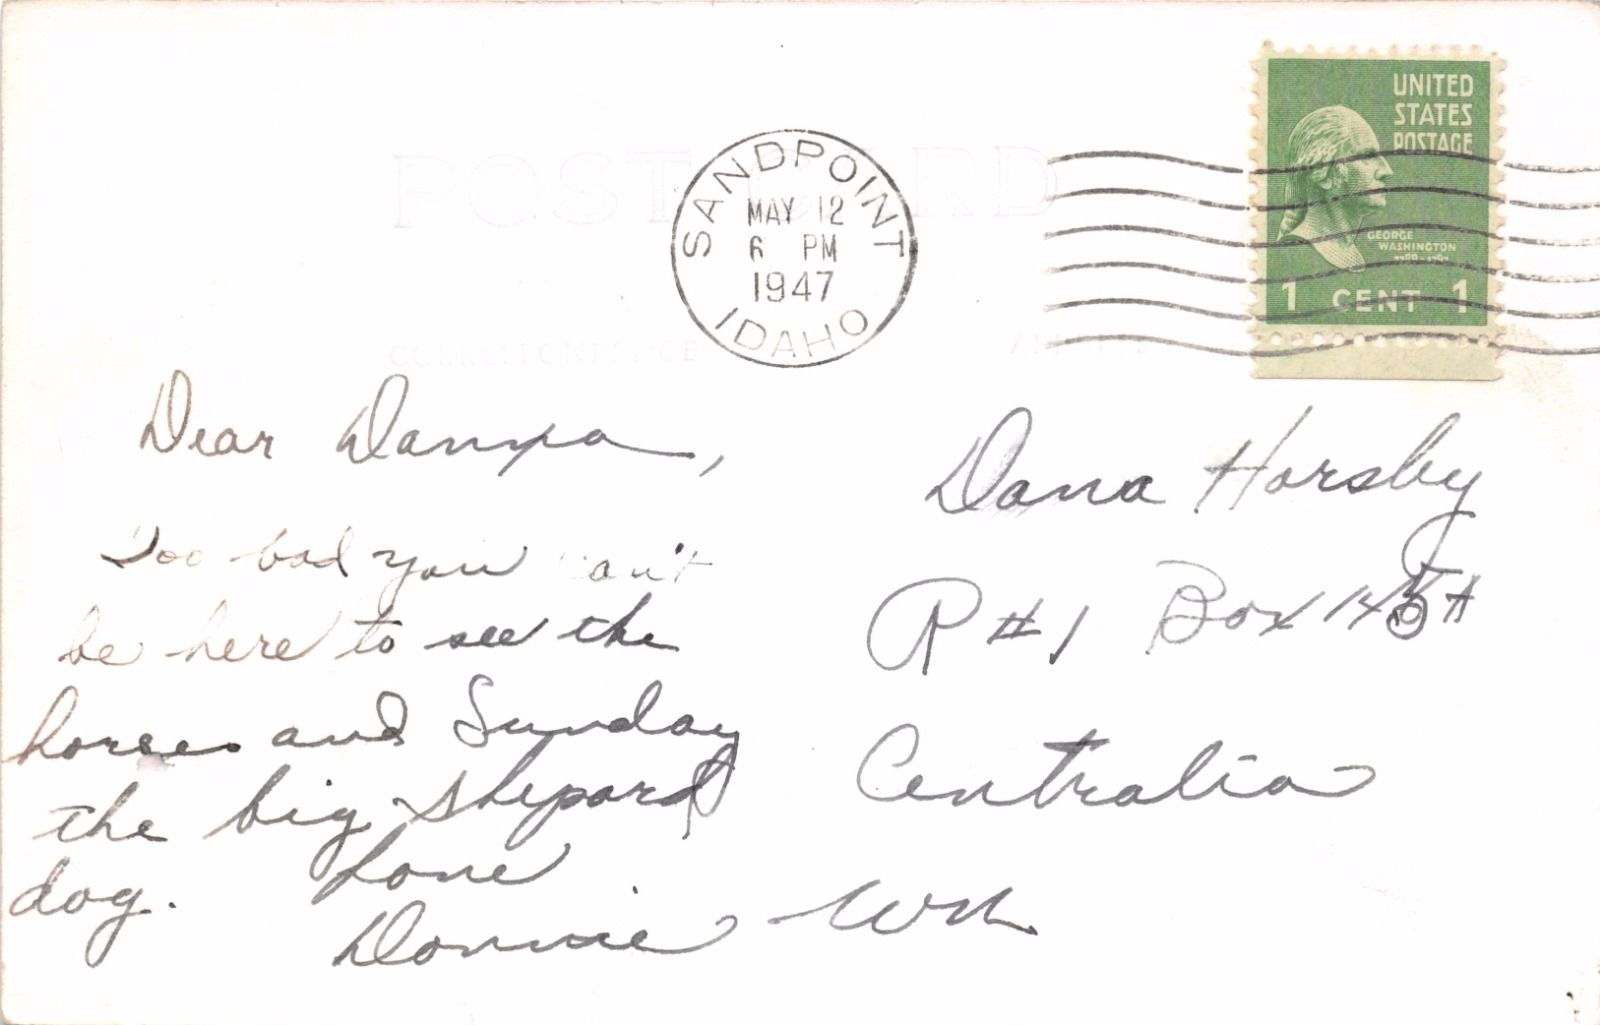 POST CARD
SANDPOINT
MAY 12
6 PM
1947
IDAHO
UNITED
STATES
POSTAGE
GEORGE
WASHINGTON
1789-1797
1 CENT 1
CORRESPONDENCE
ADDRESS
Dear
Too bad you can't
be here to see the
horses and Sunday
the big shepard
dog. Love
Donnie
Dana Horsby
R #1 Box 145A
Centralia
Wn